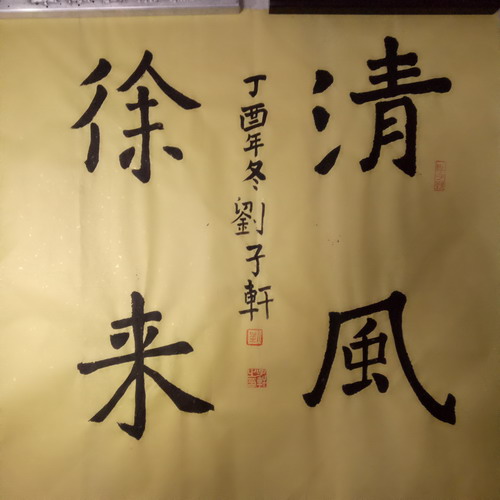 清風
徐来
丁酉年冬劉子軒